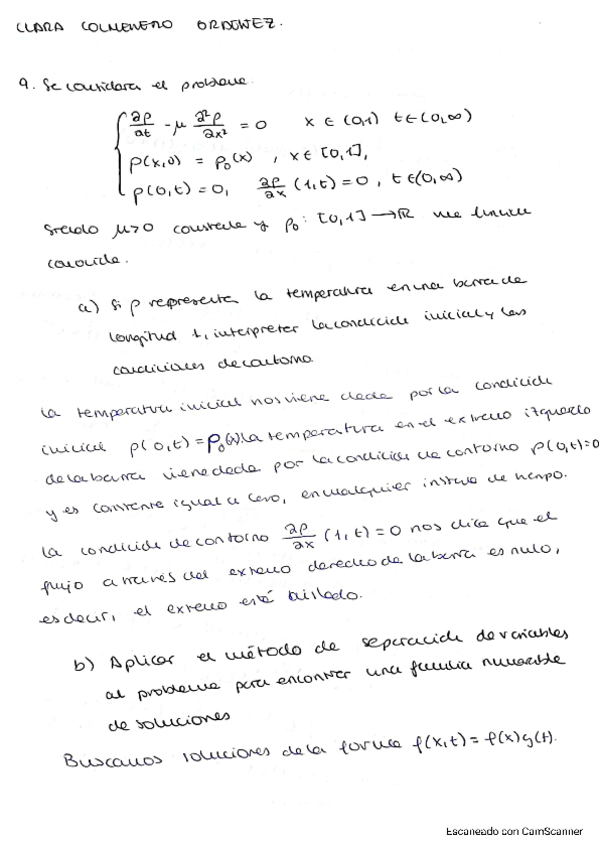 CLARA COLMENERO ORDOÑEZ.
9. Se considera el problema.
∂ρ/∂t - μ ∂²ρ/∂x² = 0 x ∈ (0,1) t ∈ (0,∞)
ρ(x,0) = ρ₀(x), x ∈ [0,1],
ρ(0,t) = 0, ∂ρ/∂x (1,t) = 0, t ∈ (0,∞)
siendo μ>0 constante y ρ₀: [0,1] → ℝ una función
conocida.
a) Si ρ representa la temperatura en una barra de
longitud 1, interpretar la condición inicial y las
condiciones de contorno.
La temperatura inicial nos viene dada por la condición
inicial ρ(0,t) = ρ₀(x) la temperatura en el extremo izquierdo
de la barra viene dada por la condición de contorno ρ(0,t)=0
y es constante igual a cero, en cualquier instante de tiempo.
La condición de contorno ∂ρ/∂x (1,t) = 0 nos dice que el
flujo a través del extremo derecho de la barra es nulo,
es decir, el extremo está aislado.
b) Aplicar el método de separación de variables
al problema para encontrar una familia numerable
de soluciones
Buscamos soluciones de la forma ρ(x,t) = f(x)g(t).
Escaneado con CamScanner